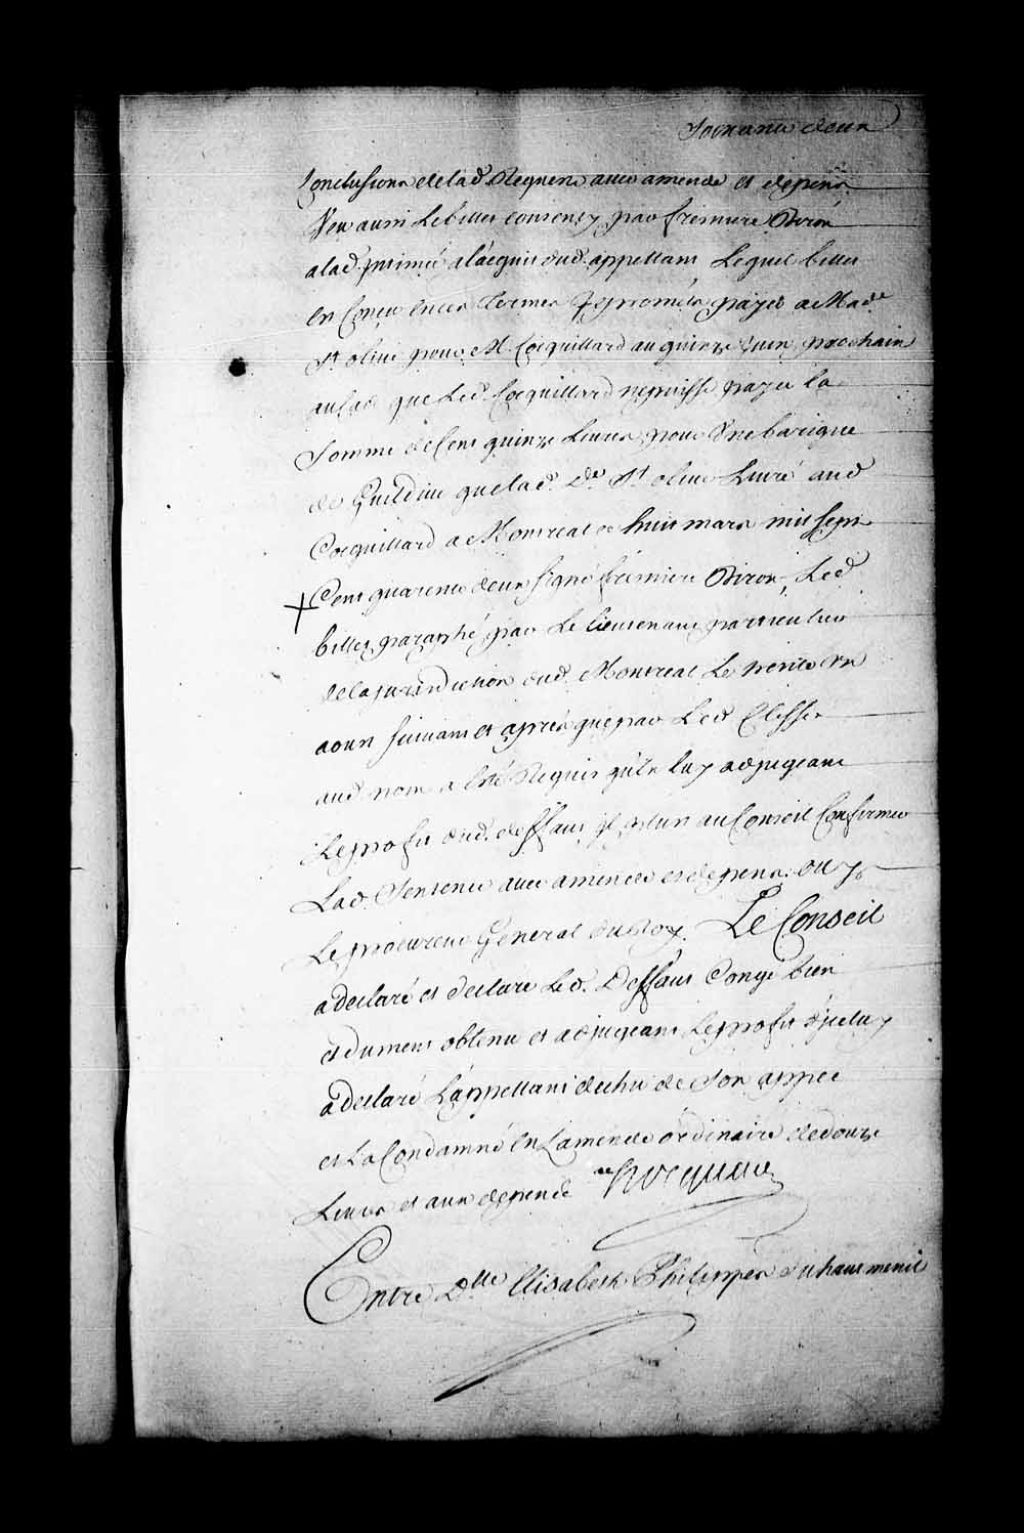 Soixante deux
Conclusions de lad. Requeste avec amende et depens
Veu aussi le billet consenty par freminiere Biron
a lad. intimée a lacquit dud. appellant Lequel billet
en conçu en ces termes Je promets payer a Made
St olive pour M. Cocquillard au quinze juin prochain
au cas que Led. Cocquillard ne puisse payer la
Somme de Cent quinze Livres pour Une barique
de Guildive que lad. De. St olive Livré aud
Cocquillard a Montreal ce huit mars mil sept
Cent quarente deux signé freminiere Biron, Led
billet paraphé par Le lieutenant particulier
de la jurisdiction dud. Montreal Le trente un
aoust suivant et après que par Led Elesse
aud nom a été Requis qu'en luy adjugeant
Le profit dud. deffaut il plut au Conseil Confirmer
Lad. Sentence avec amende et depens. Ouy
Le procureur General du Roy. Le Conseil
a declaré et declare Led. Deffaut Congé bien
et dument obtenu et adjugeant Le profit d'jceluy
a declaré L'appellant dechu de son appel
et La Condamné en L'amende ordinaire de douze
Livres et aux depens Hocquart
Entre Dlle Elisabeth Philippes du hautmenil